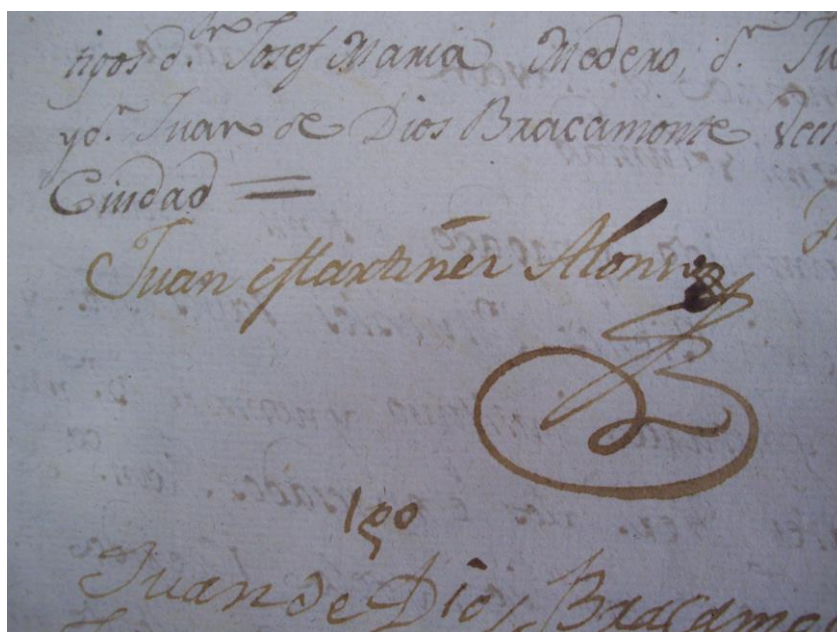 tigos d.n Josef Maria Medero, d.n Ju
y d.n Juan de Dios Bracamonte Veci
Ciudad =
Juan Martinez Alonso
tgo
Juan de Dios Bracamo